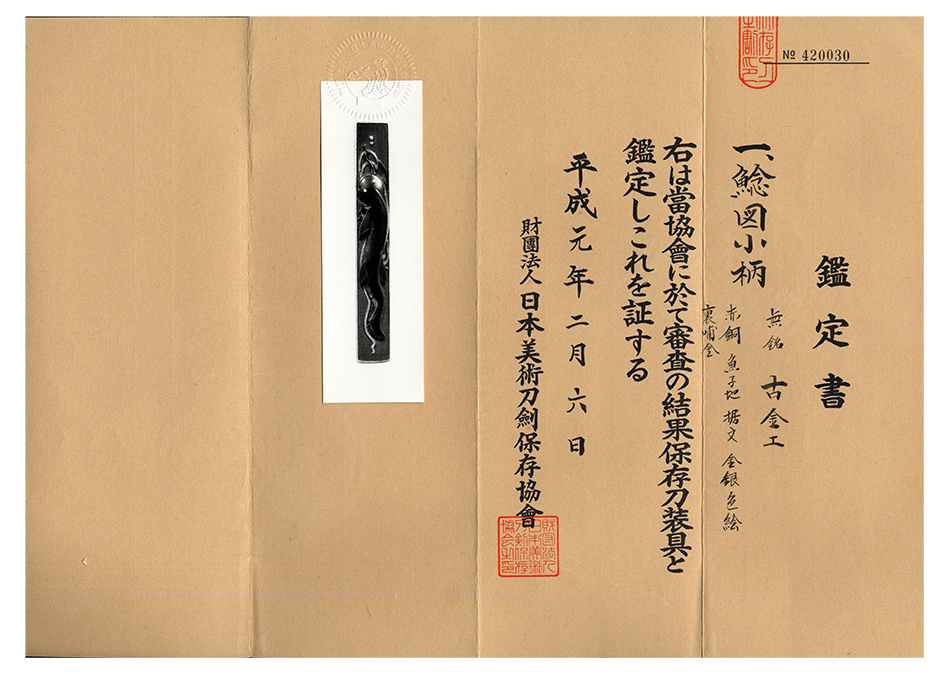 № 420030
鑑定書
一、鯰図小柄
無銘 古金工
赤銅 魚子地 据文 金銀色絵
裏哺金
右は當協會に於て審査の結果保存刀装具と
鑑定しこれを証する
平成元年二月六日
財團法人日本美術刀劍保存協會